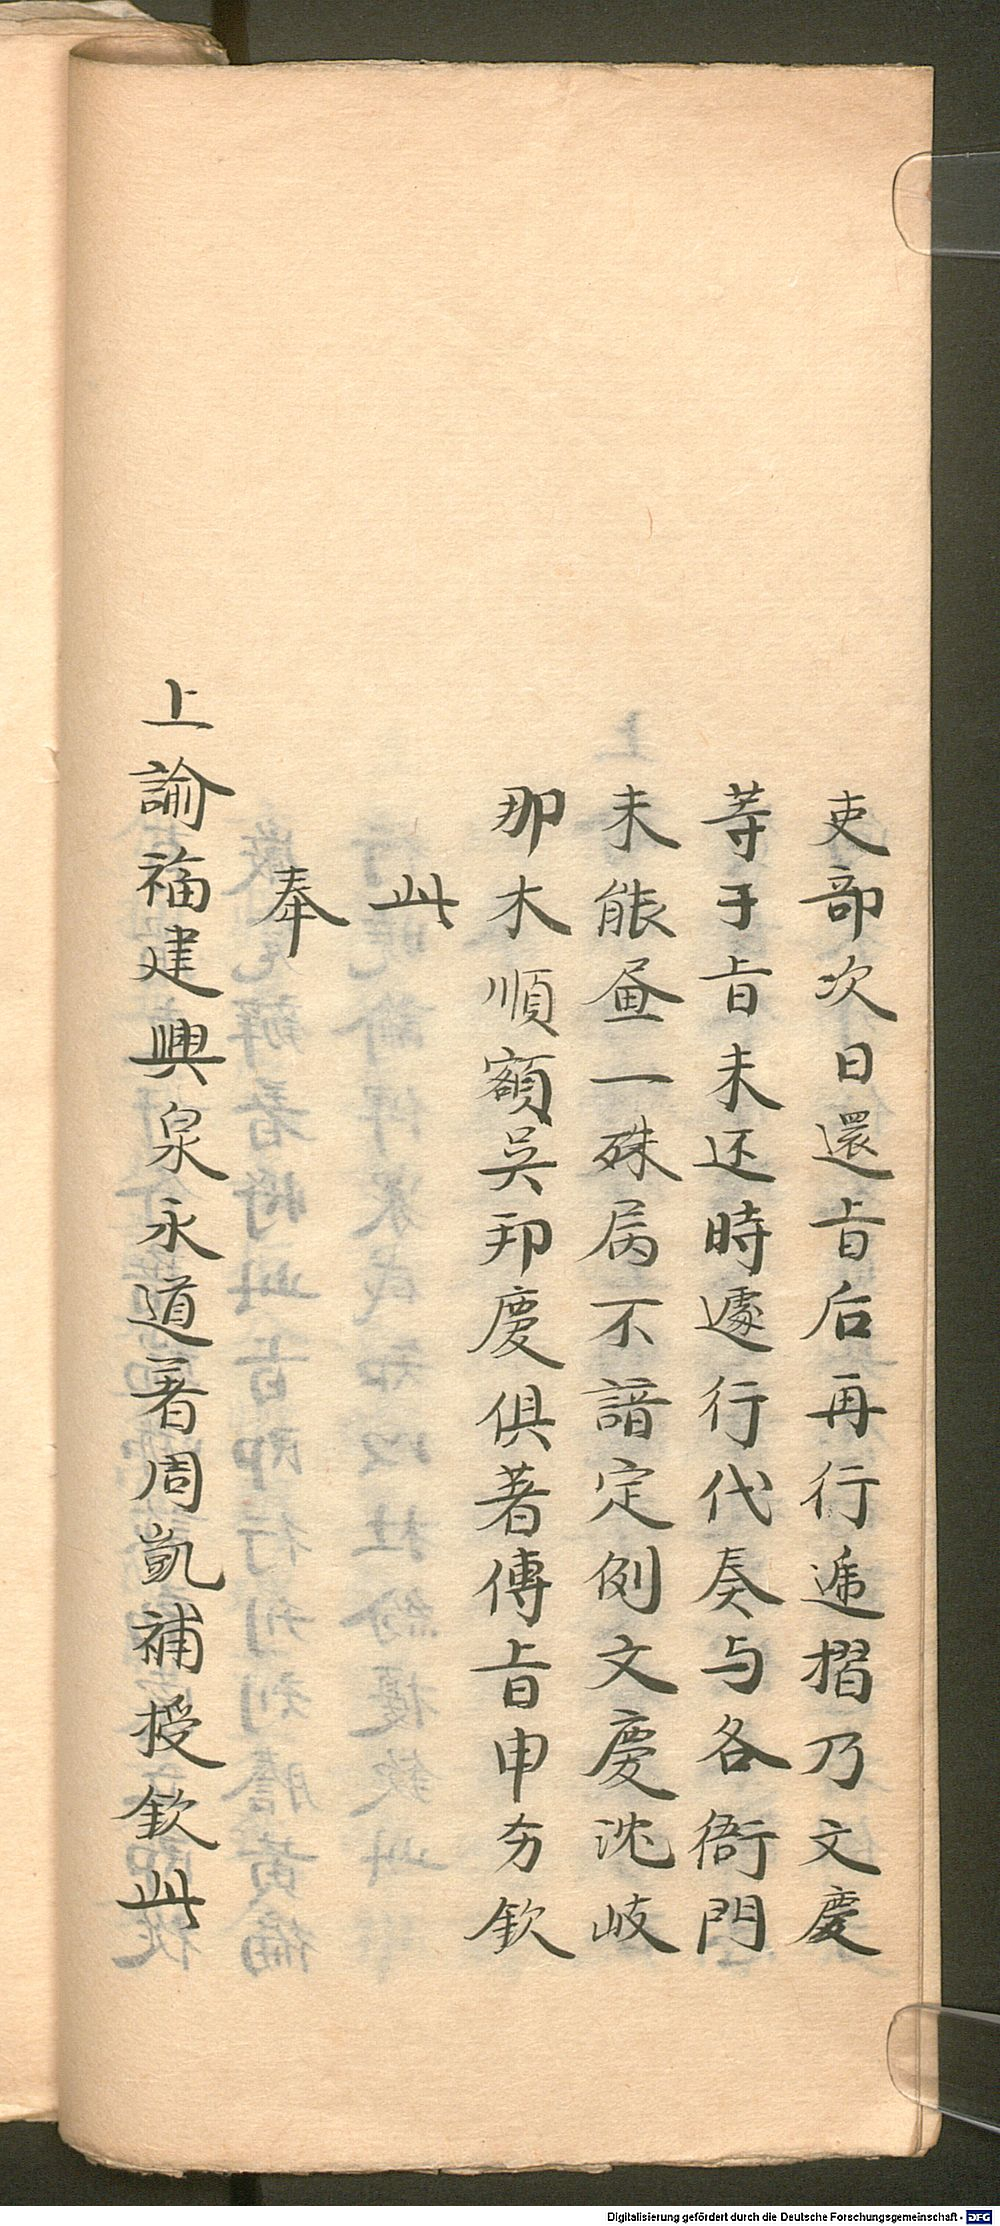 吏部次日還㫖后再行逓摺乃文慶
荨于㫖未还時遽行代奏与各衙門
未能画一殊属不諳定例文慶沈岐
那木順額吳邦慶俱著傳㫖申夯欽
此
奉
上諭福建興泉永道著周凱補授欽此
Digitalisierung gefördert durch die Deutsche Forschungsgemeinschaft - DFG